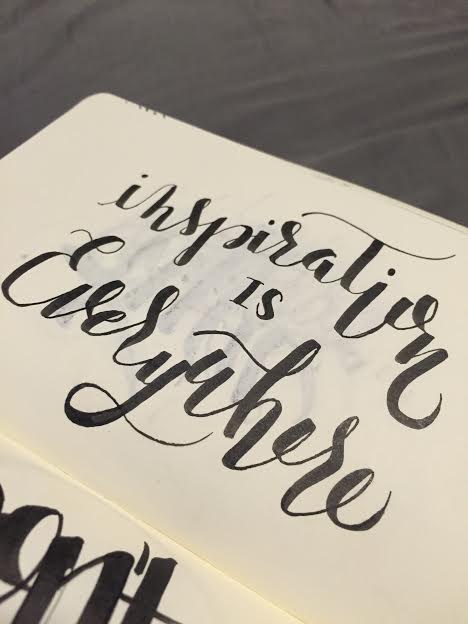 inspiration
IS
Everywhere